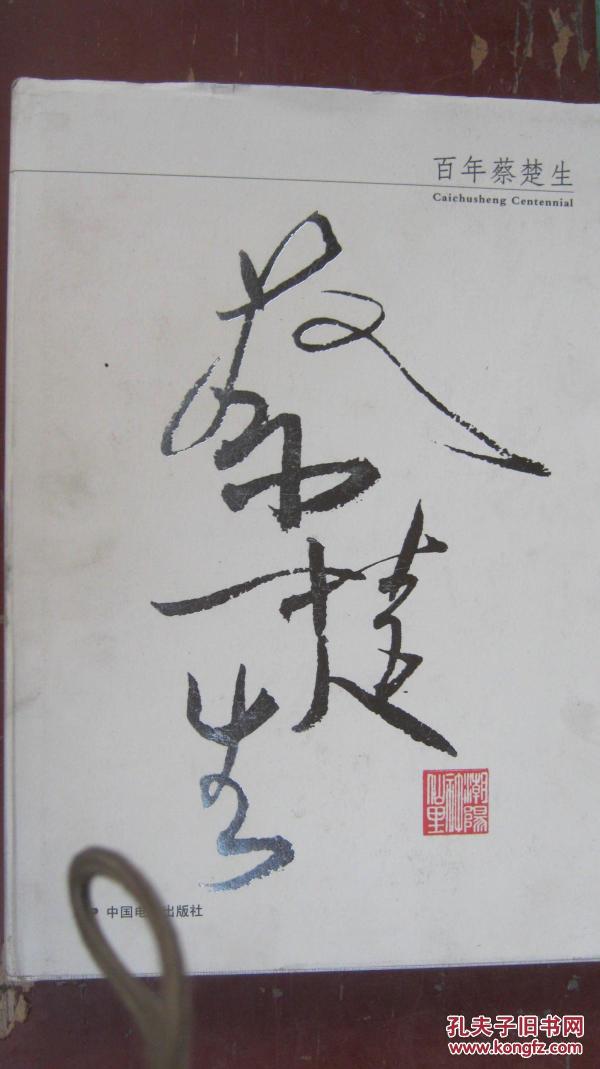 百年蔡楚生
Caichusheng Centennial
蔡
楚
生
潮陽
中国电 出版社
孔夫子旧书网
www.kongfz.com